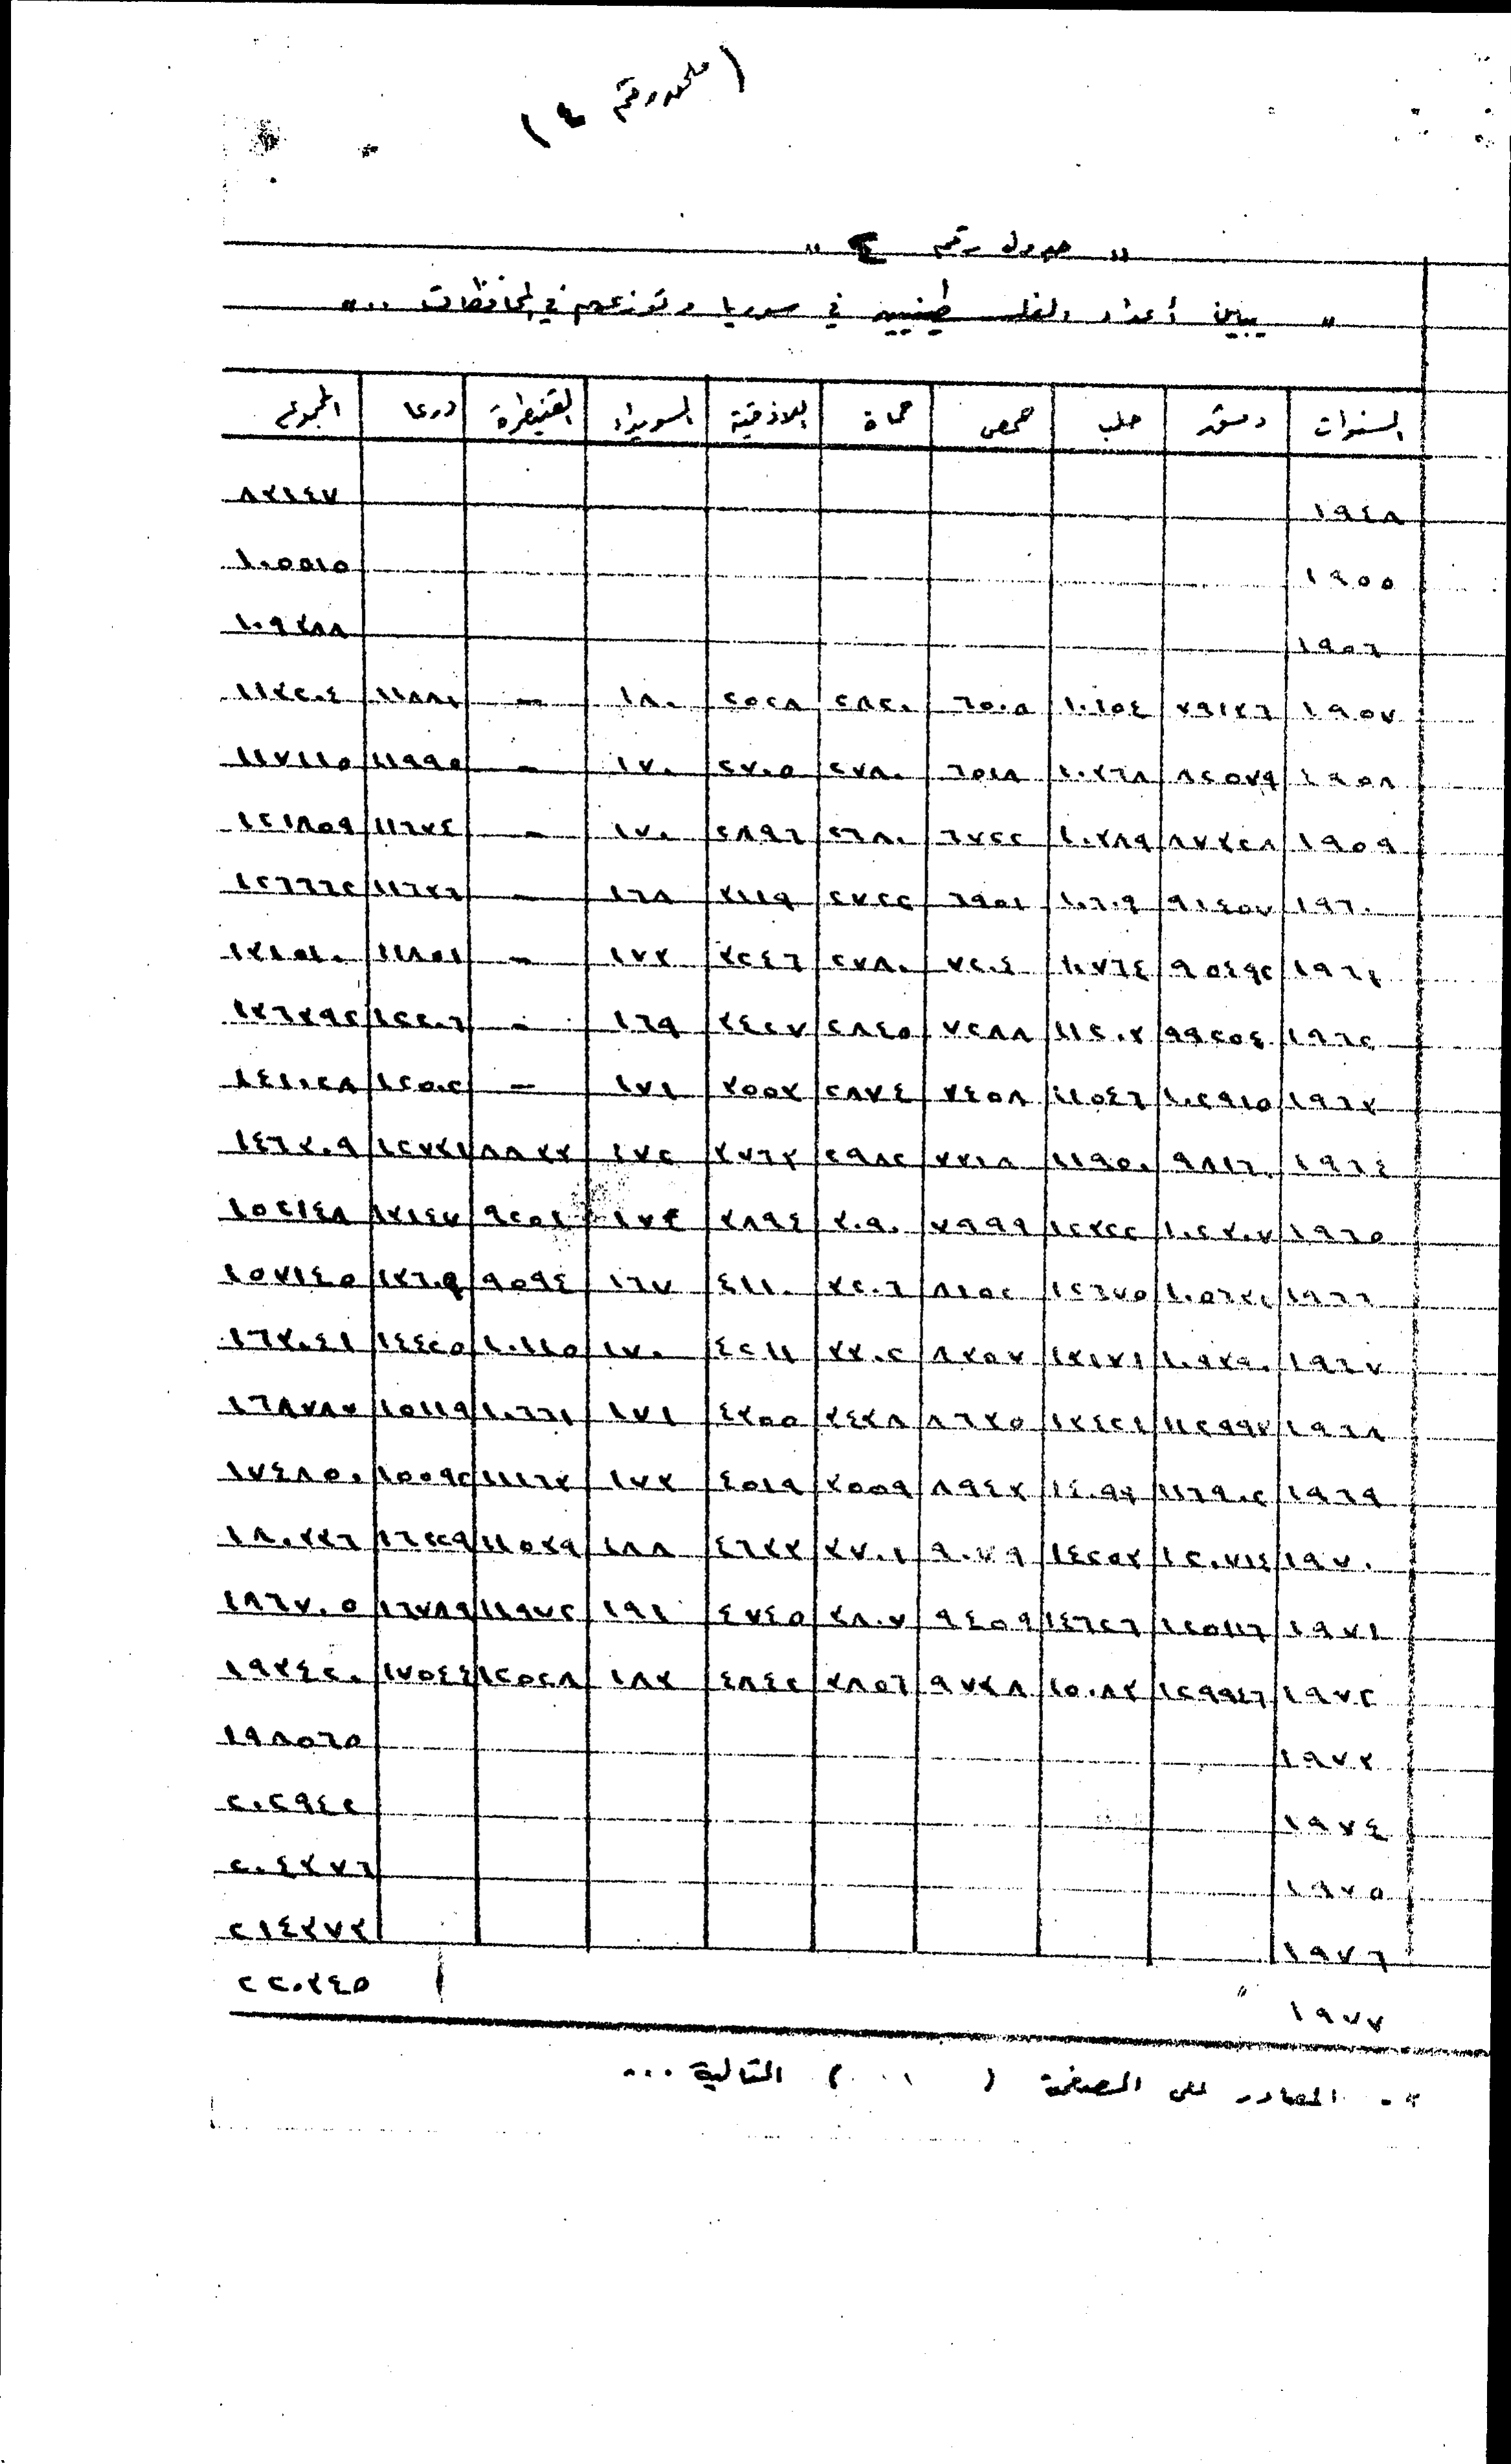 ( ملحق رقم ٤ )
" جدول رقم ٤ "
" يبين أعداد الفلسطينيين في سوريا وتوزعهم في المحافظات .. "
السنوات دمشق حلب حمص حماة اللاذقية السويداء القنيطرة درعا المجموع
١٩٤٨ ٨٣١٤٧
١٩٥٥ ١٠٥٥١٥
١٩٥٦ ١٠٩٣٨٨
١٩٥٧ ٧٩١٣٦ ١٠١٥٤ ٦٥٠٥ ٢٨٢٠ ٢٥٢٨ ١٨٠ - ١١٨٨١ ١١٣٢٠٤
١٩٥٨ ٨٢٥٧٩ ١٠٣٦٨ ٦٥١٨ ٢٧٨٠ ٢٧٠٥ ١٧٠ - ١١٩٩٥ ١١٧١١٥
١٩٥٩ ٨٧٣٢٨ ١٠٣٨٩ ٦٧٢٢ ٢٦٨٠ ٢٨٩٦ ١٧٠ - ١١٦٧٤ ١٢١٨٥٩
١٩٦٠ ٩١٤٥٧ ١٠٦٠٩ ٦٩٥١ ٢٧٢٢ ٣١١٩ ١٦٨ - ١١٦٣٦ ١٢٦٦٦٢
١٩٦١ ٩٥٤٩٢ ١٠٧٦٤ ٧٢٠٤ ٢٧٨٠ ٣٢٤٦ ١٧٣ - ١١٨٥١ ١٣١٥١٠
١٩٦٢ ٩٩٢٥٤ ١١٢٠٣ ٧٢٨٨ ٢٨٤٥ ٣٤٢٧ ١٦٩ - ١٢٢٠٦ ١٣٦٣٩٢
١٩٦٣ ١٠٢٩١٥ ١١٥٤٦ ٧٤٥٨ ٢٨٧٤ ٣٥٥٣ ١٧١ - ١٢٥٠٢ ١٤١٠٢٨
١٩٦٤ ٩٨١٦٠ ١١٩٥٠ ٧٧١٨ ٢٩٨٢ ٣٧٦٣ ١٧٢ ٨٨٣٣ ١٢٧٣١ ١٤٦٣٠٩
١٩٦٥ ١٠٢٣٠٧ ١٢٣٢٢ ٧٩٩٩ ٣٠٩٠ ٣٨٩٤ ١٧٣ ٩٢٥١ ١٣١٤٧ ١٥٢١٤٨
١٩٦٦ ١٠٥٦٣٢ ١٢٦٧٥ ٨١٥٢ ٣٢٠٦ ٤١١٠ ١٦٧ ٩٥٩٤ ١٣٦٠٩ ١٥٧١٤٥
١٩٦٧ ١٠٩٣٩٠ ١٣١٧١ ٨٣٥٧ ٣٣٠٢ ٤٢١١ ١٧٠ ١٠١١٥ ١٤٤٢٥ ١٦٣٠٤١
١٩٦٨ ١١٢٩٩٧ ١٣٤٢١ ٨٦٣٥ ٣٤٢٨ ٤٣٥٥ ١٧١ ١٠٦٦١ ١٥١١٩ ١٦٨٧٨٧
١٩٦٩ ١١٦٩٠٢ ١٤٠٩٣ ٨٩٤٣ ٣٥٥٩ ٤٥١٩ ١٧٣ ١١١٦٣ ١٥٥٩٢ ١٧٤٨٥٠
١٩٧٠ ١٢٠٧١٤ ١٤٢٥٣ ٩٠٧٩ ٣٧٠١ ٤٦٣٣ ١٨٨ ١١٥٣٩ ١٦٢٢٩ ١٨٠٣٣٦
١٩٧١ ١٢٥١١٦ ١٤٦٢٦ ٩٤٥٩ ٣٨٠٧ ٤٧٤٥ ١٩١ ١١٩٧٢ ١٦٧٨٩ ١٨٦٧٠٥
١٩٧٢ ١٢٩٩٤٦ ١٥٠٨٣ ٩٧٣٨ ٣٨٥٦ ٤٨٤٢ ١٨٣ ١٢٥٢٨ ١٧٥٤٤ ١٩٣٤٢٠
١٩٧٣ ١٩٨٥٦٥
١٩٧٤ ٢٠٢٩٤٢
١٩٧٥ ٢٠٤٣٧٦
١٩٧٦ ٢١٤٣٧٣
١٩٧٧ ٢٢٠٣٤٥
- المصادر على الصفحة ( ) التالية ...